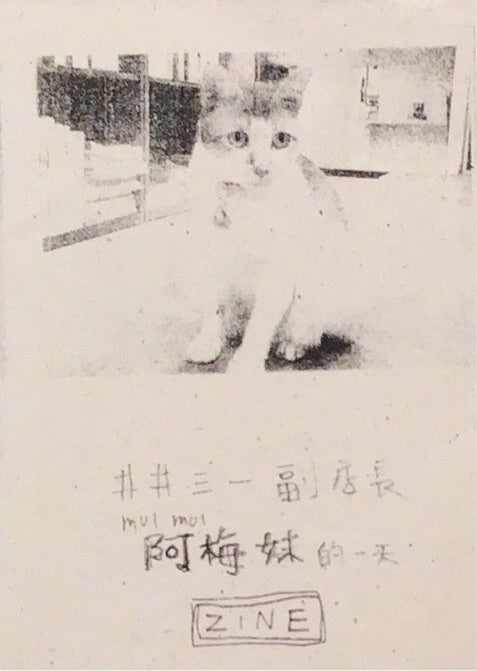 井井三一副店長
mui mui
阿梅妹的一天
ZINE